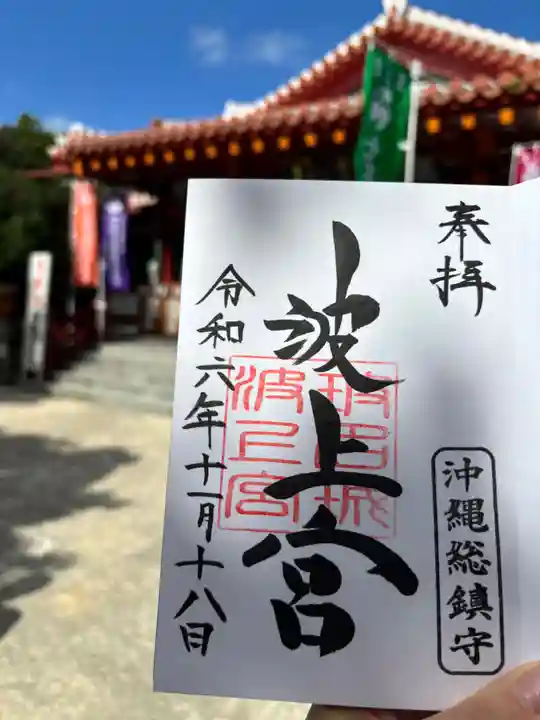 奉拝
沖縄総鎮守
波上宮
令和六年十一月十八日
波上宮